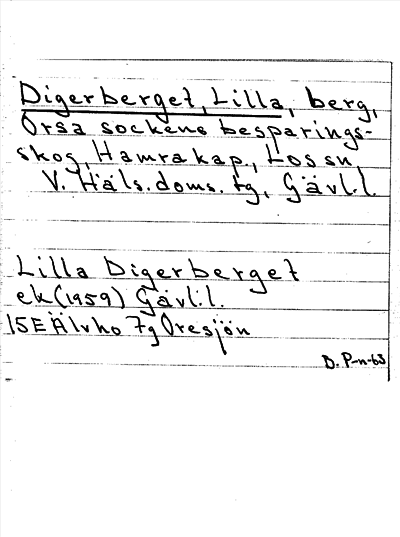 Digerberget, Lilla, berg,
Orsa sockens besparings-
skog, Hamra kap., Los sn,
V. Häls. doms. tg, Gävl. l.
Lilla Digerberget
ek (1959) Gävl. l.
15E Älvho 7g Öresjön
D. P-n-63